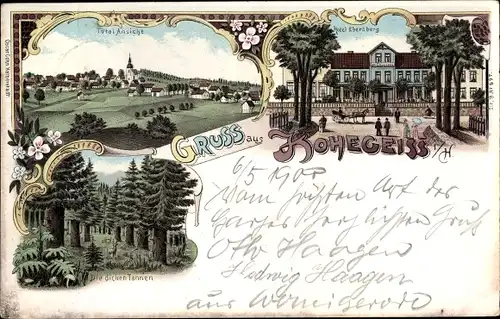 Total Ansicht
Hotel Ebersberg
GRUSS aus HOHEGEISS i/H.
Die dicken Tannen
6/5 1900
Vom höchsten Ort des
Harzes herzlichen Gruß
Otto Haagen
Hedwig Haagen
aus Wernigerode